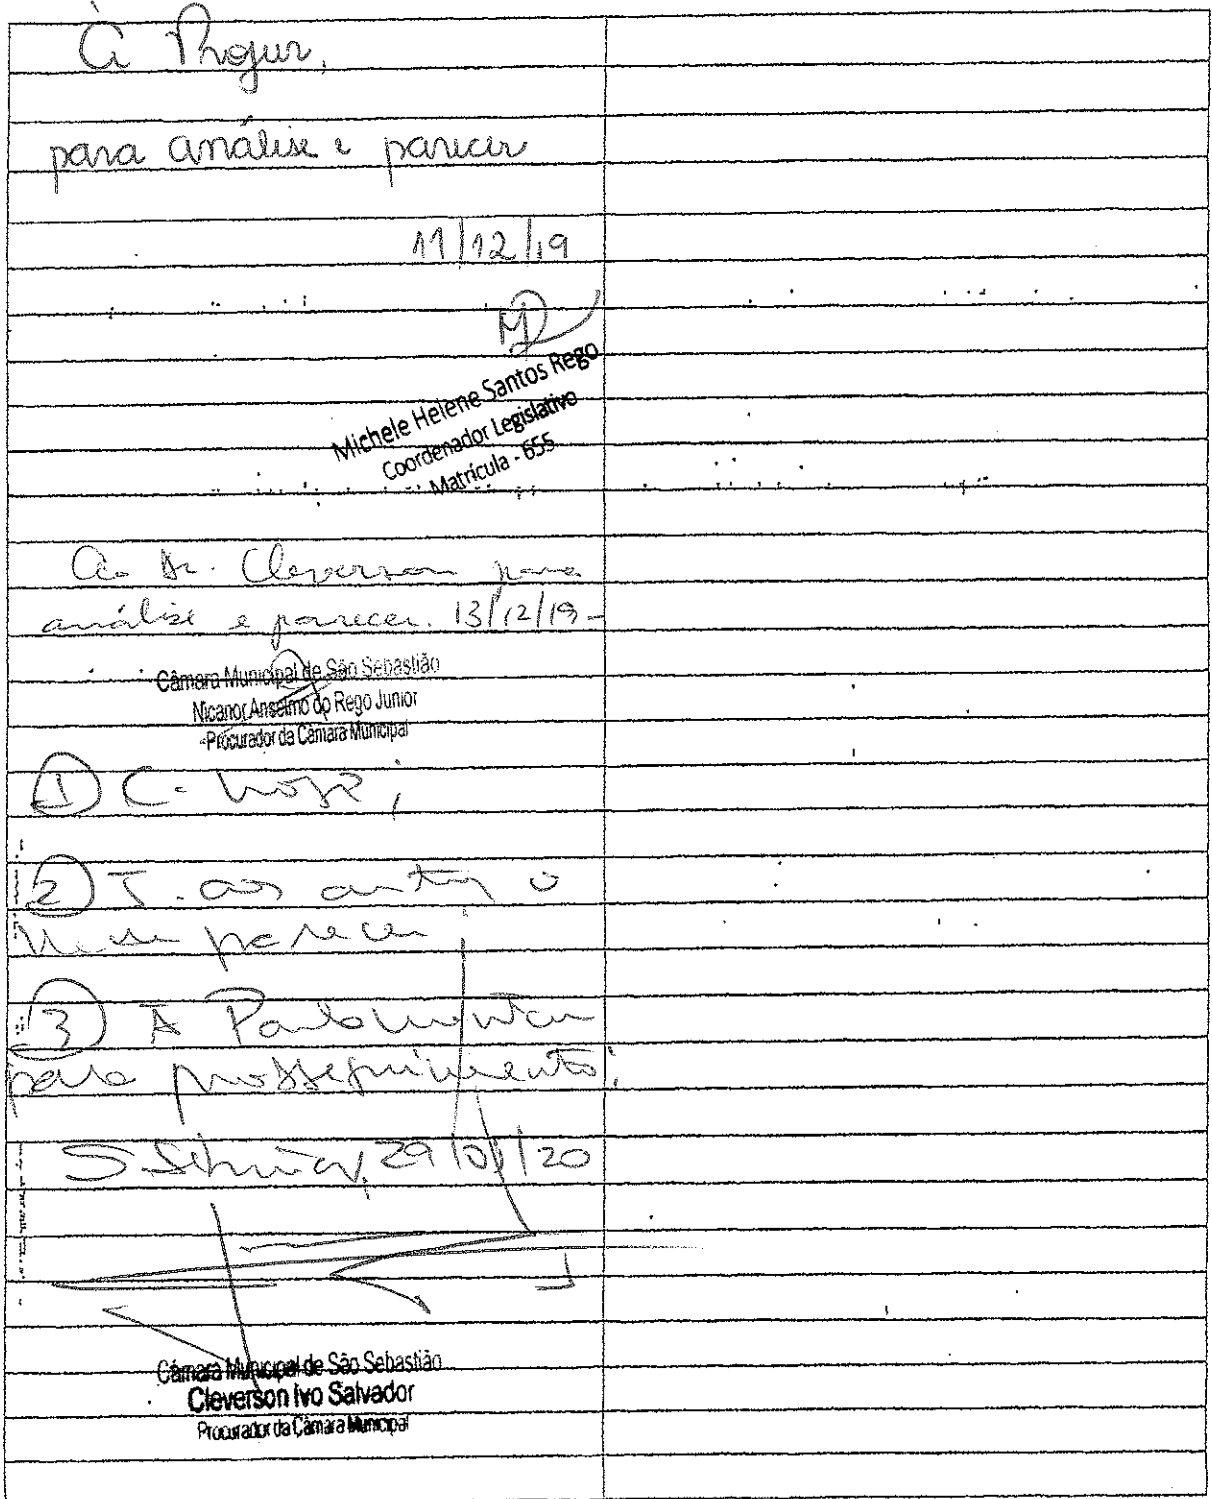 À Projur,
para análise e parecer
11/12/19
Michele Helene Santos Rego
Coordenador Legislativo
Matrícula - 655
Ao Dr. Cleverson para
análise e parecer. 13/12/19-
Câmara Municipal de São Sebastião
Nicanor Anselmo do Rego Junior
Procurador da Câmara Municipal
① C. hoje;
② J. aos autos o
parecer
③ À Parlamentar
para prosseguimento;
S. Sebastião, 29/01/20
Câmara Municipal de São Sebastião
Cleverson Ivo Salvador
Procurador da Câmara Municipal